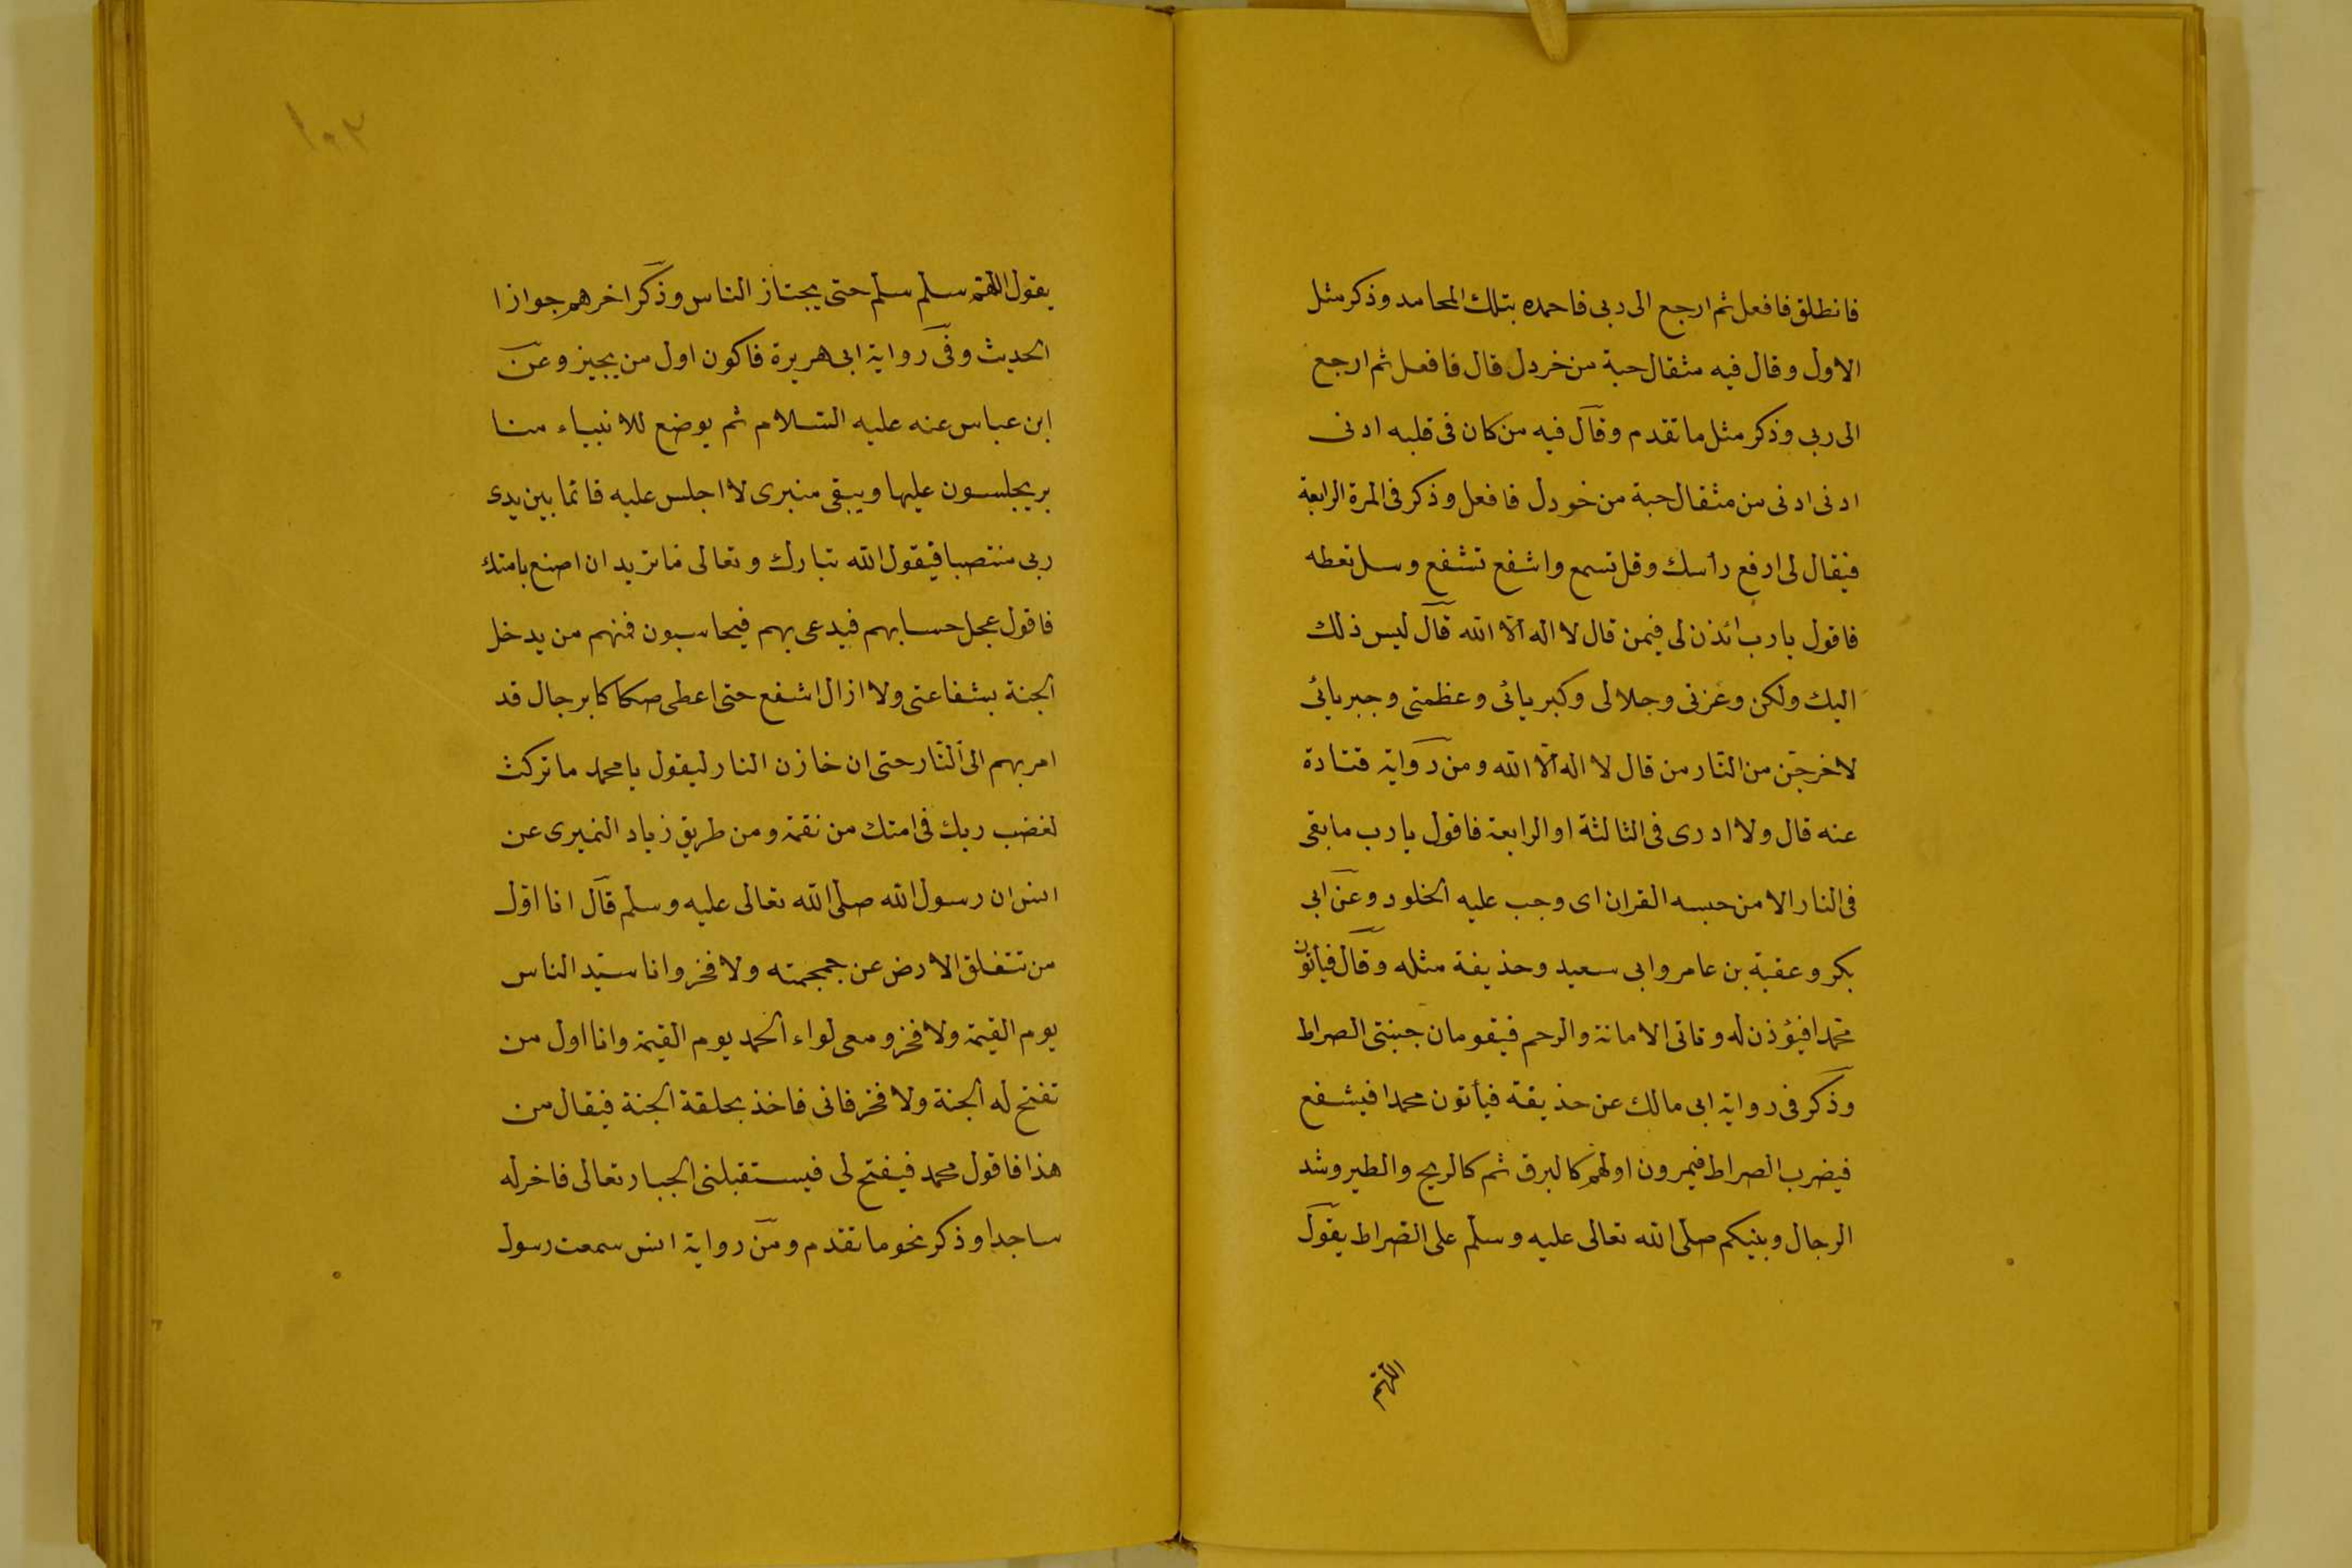 فانطلق فافعل ثم ارجع الى ربى فاحمده بتلك المحامد وذكر مثل
الاول وقال فيه مثقال حبة من خردل قال فافعل ثم ارجع
الى ربى وذكر مثل ما تقدم وقال فيه من كان فى قلبه ادنى
ادنى ادنى من مثقال حبة من خردل فافعل وذكر فى المرة الرابعة
فيقال لى ارفع رأسك وقل تسمع واشفع تشفع وسل تعطه
فاقول يارب ائذن لى فيمن قال لا اله الا الله قال ليس ذلك
اليك ولكن وعزتى وجلالى وكبريائى وعظمتى وجبريائى
لاخرجن من النار من قال لا اله الا الله ومن رواية قتادة
عنه قال ولا ادرى فى الثالثة او الرابعة فاقول يارب ما بقى
فى النار الا من حبسه القران اى وجب عليه الخلود وعن ابى
بكر وعقبة بن عامر وابى سعيد وحذيفة مثله وقال فيأتون
محمدا فيؤذن له وتاتى الامانة والرحم فيقومان جنبتى الصراط
وذكر فى رواية ابى مالك عن حذيفة فيأتون محمدا فيشفع
فيضرب الصراط فيمرون اولهم كالبرق ثم كالريح والطير وشد
الرجال وبنيكم صلى الله تعالى عليه وسلم على الصراط يقول
اللهم
١٠٣
يقول اللهم سلم سلم حتى يجتاز الناس وذكر اخرهم جوازا
الحديث وفى رواية ابى هريرة فاكون اول من يجيز وعن
ابن عباس عنه عليه السلام ثم يوضع للانبياء منا
بر يجلسون عليها ويبقى منبرى لا اجلس عليه قائما بين يدى
ربى منتصبا فيقول الله تبارك وتعالى ما تريد ان اصنع بامتك
فاقول عجل حسابهم فيدعى بهم فيحاسبون فمنهم من يدخل
الجنة بشفاعتى ولا ازال اشفع حتى اعطى صكاكا برجال قد
امر بهم الى النار حتى ان خازن النار ليقول يا محمد ما تركت
لغضب ربك فى امتك من نقمة ومن طريق زياد النميرى عن
انس ان رسول الله صلى الله تعالى عليه وسلم قال انا اول
من تتفلق الارض عن جمجمته ولا فخر وانا سيد الناس
يوم القيمة ولا فخر ومعى لواء الحمد يوم القيمة وانا اول من
تفتح له الجنة ولا فخر فانى فاخذ بحلقة الجنة فيقال من
هذا فاقول محمد فيفتح لى فيستقبلنى الجبار تعالى فاخر له
ساجدا وذكر نحو ما تقدم ومن رواية انس سمعت رسول